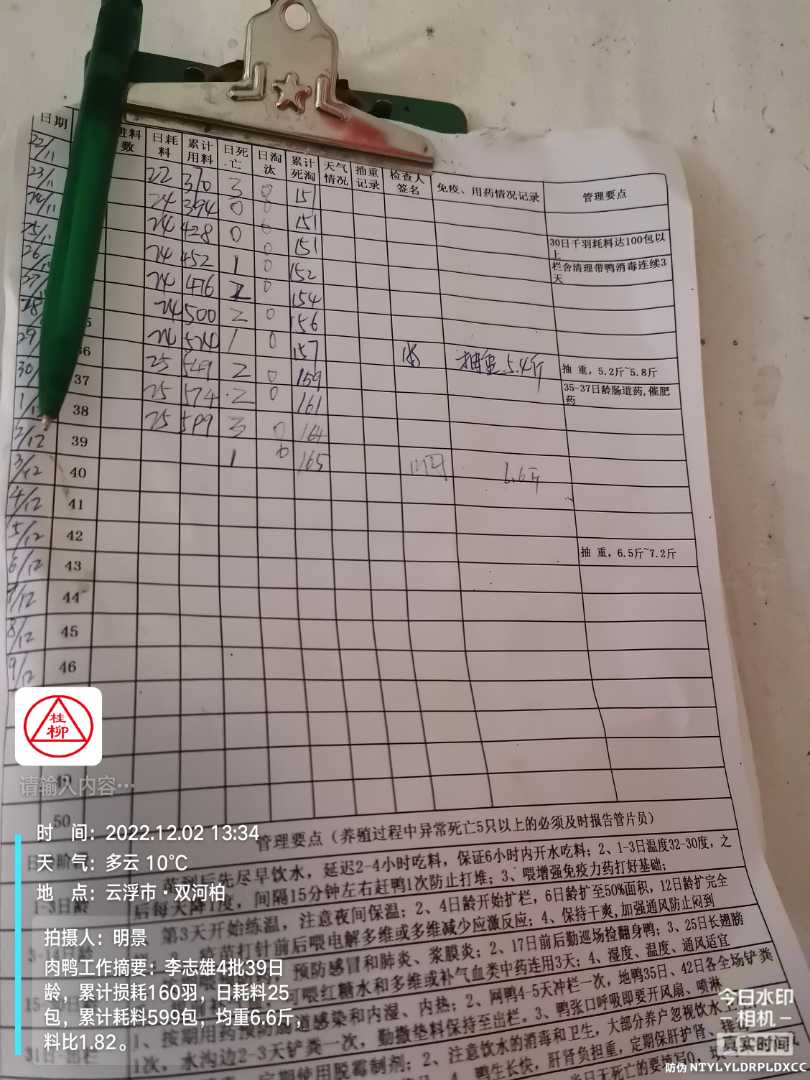 日期 进料数 日耗料 累计用料 日死亡 日淘汰 累计死淘 天气情况 抽重记录 检查人签名 免疫、用药情况记录 管理要点
22/11 22 370 3 0 151
23/11 24 394 0 0 151
24/11 24 428 0 0 151 30日千羽耗料达100包以上
25/11 24 452 1 0 152 栏舍清理带鸭消毒连续3天
26/11 24 476 2 0 154
27/11 24 500 2 0 156
28/11 24 524 1 0 157
29/11 36 25 549 2 0 159 抽重5.4斤 抽 重，5.2斤~5.8斤
30/ 37 25 574 2 0 161 35-37日龄肠道药,催肥药
1/12 38 25 599 3 0 164
2/12 39 1 0 165 6.6斤
3/12 40
4/12 41
5/12 42
6/12 43 抽 重，6.5斤~7.2斤
7/12 44
8/12 45
9/12 46
49
50
管理要点（养殖过程中异常死亡5只以上的必须及时报告管片员）
苗到后先尽早饮水，延迟2-4小时吃料，保证6小时内开水吃料；2、1-3日温度32-30度，之
1-3日龄 后每天降1度，间隔15分钟左右赶鸭1次防止打堆；3、喂增强免疫力药打好基础；
第3天开始练温，注意夜间保温；2、4日龄开始扩栏，6日龄扩至50%面积，12日龄扩完全
疫苗打针前后喂电解多维或多维减少应激反应；4、保持干爽,加强通风防止闷到
预防感冒和肺炎、浆膜炎；2、17日前后勤巡场检翻身鸭；3、25日长翅膀
可喂红糖水和多维或补气血类中药连用3天；4、湿度、温度、通风适宜
1、按期用药预防肠道感染和内湿、内热；2、网鸭4-5天冲栏一次，地鸭35日、42日各全场铲粪
31日-出栏 1次，水沟边2-3天铲粪一次，勤撒垫料保持至出栏。3、鸭张口呼吸即要开风扇、喷淋
定期使用脱霉制剂；2、注意饮水的消毒和卫生，大部分养户忽视饮水
鸭生长快，肝肾负担重，定期保肝护肾、
桂柳
请输入内容…
时 间：2022.12.02 13:34
天 气：多云 10℃
地 点：云浮市·双河柏
拍摄人：明景
肉鸭工作摘要：李志雄4批39日
龄，累计损耗160羽，日耗料25
包，累计耗料599包，均重6.6斤，
料比1.82。
今日水印
相机
真实时间
防伪 NTYLYLDRPLDXCC